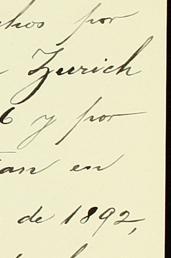 chos por
Zurich
6 y por
tan en
de 1892,